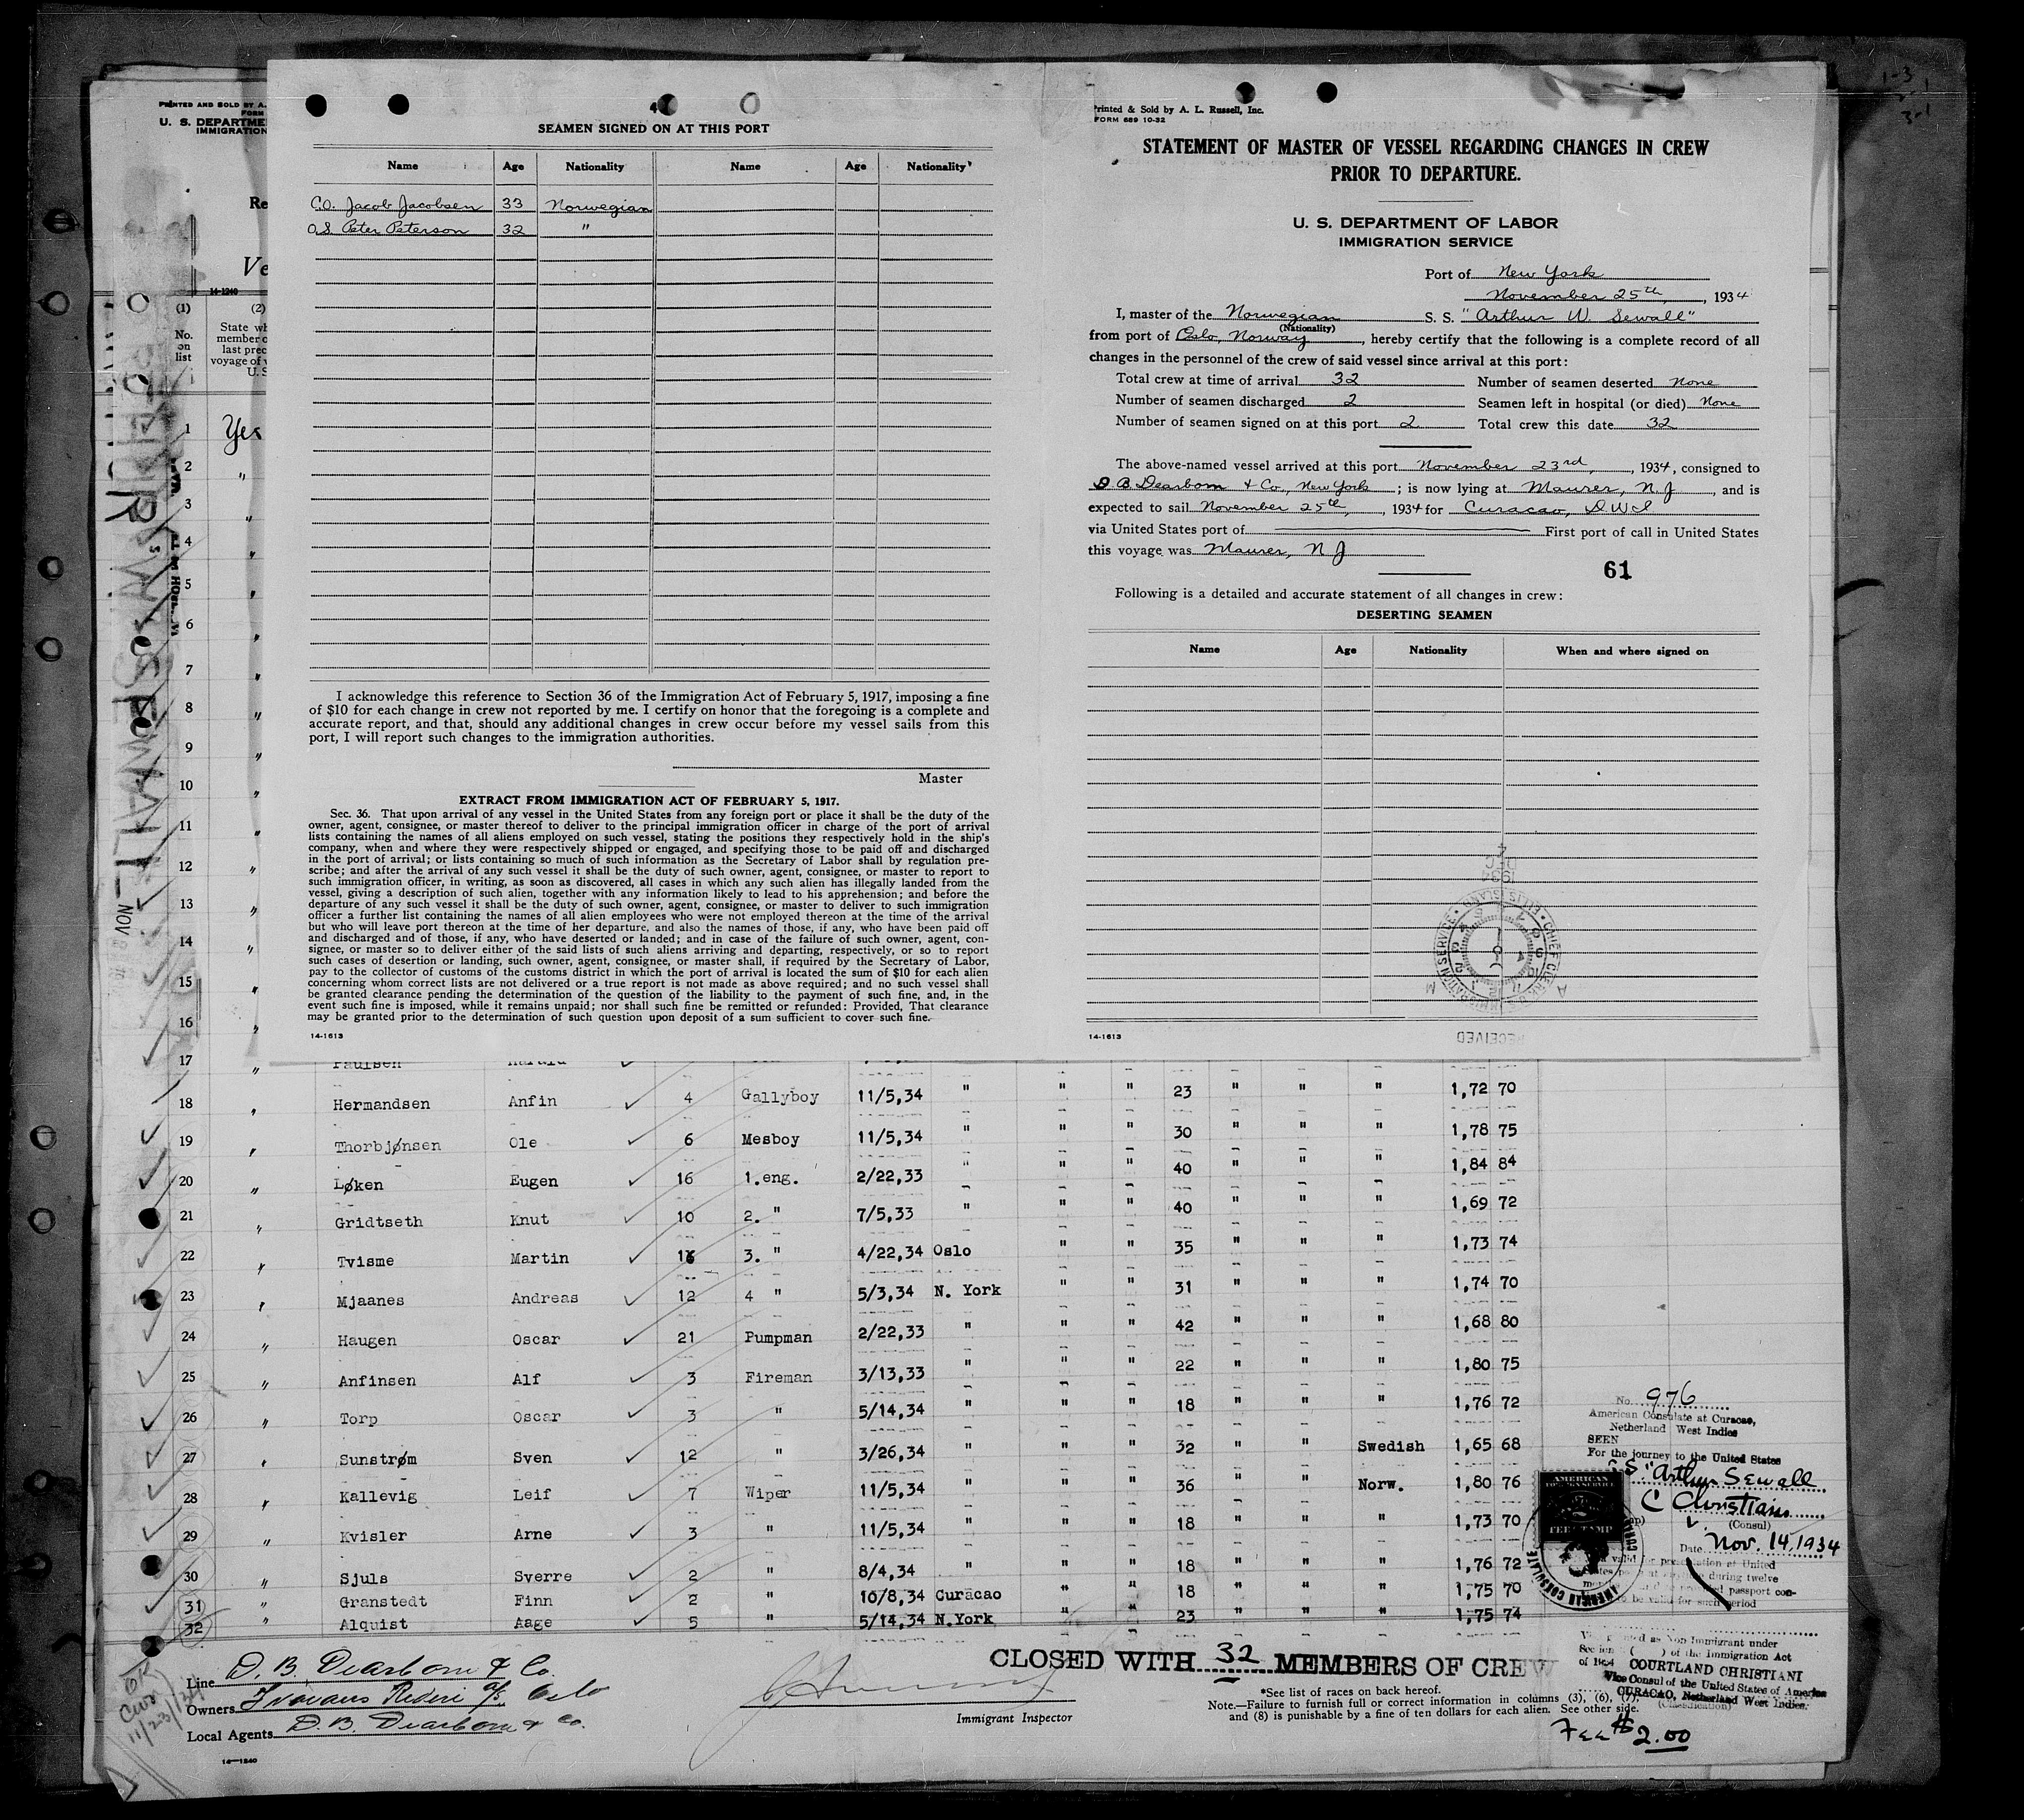 PRINTED AND SOLD BY A.
FORM
U. S. DEPARTME
IMMIGRATION
Re
Ve
14-1240
(1)
(2)
No. on list
State wh
member o
last prec
voyage of v
U. S
1 Yes
2 "
3 "
4 "
5 "
6 "
7 "
8 "
9 "
10 "
11 "
12 "
13 "
14 "
15 "
16 "
17 "
NOV
4
SEAMEN SIGNED ON AT THIS PORT
Name Age Nationality Name Age Nationality
C.O. Jacob Jacobsen 33 Norwegian
O.S. Peter Peterson 32 "
I acknowledge this reference to Section 36 of the Immigration Act of February 5, 1917, imposing a fine
of $10 for each change in crew not reported by me. I certify on honor that the foregoing is a complete and
accurate report, and that, should any additional changes in crew occur before my vessel sails from this
port, I will report such changes to the immigration authorities.
Master
EXTRACT FROM IMMIGRATION ACT OF FEBRUARY 5, 1917.
Sec. 36. That upon arrival of any vessel in the United States from any foreign port or place it shall be the duty of the
owner, agent, consignee, or master thereof to deliver to the principal immigration officer in charge of the port of arrival
lists containing the names of all aliens employed on such vessel, stating the positions they respectively hold in the ship's
company, when and where they were respectively shipped or engaged, and specifying those to be paid off and discharged
in the port of arrival; or lists containing so much of such information as the Secretary of Labor shall by regulation pre-
scribe; and after the arrival of any such vessel it shall be the duty of such owner, agent, consignee, or master to report to
such immigration officer, in writing, as soon as discovered, all cases in which any such alien has illegally landed from the
vessel, giving a description of such alien, together with any information likely to lead to his apprehension; and before the
departure of any such vessel it shall be the duty of such owner, agent, consignee, or master to deliver to such immigration
officer a further list containing the names of all alien employees who were not employed thereon at the time of the arrival
but who will leave port thereon at the time of her departure, and also the names of those, if any, who have been paid off
and discharged and of those, if any, who have deserted or landed; and in case of the failure of such owner, agent, con-
signee, or master so to deliver either of the said lists of such aliens arriving and departing, respectively, or so to report
such cases of desertion or landing, such owner, agent, consignee, or master shall, if required by the Secretary of Labor,
pay to the collector of customs of the customs district in which the port of arrival is located the sum of $10 for each alien
concerning whom correct lists are not delivered or a true report is not made as above required; and no such vessel shall
be granted clearance pending the determination of the question of the liability to the payment of such fine, and, in the
event such fine is imposed, while it remains unpaid; nor shall such fine be remitted or refunded: Provided, That clearance
may be granted prior to the determination of such question upon deposit of a sum sufficient to cover such fine.
14-1613
Printed & Sold by A. L. Russell, Inc.
FORM 689 10-32
STATEMENT OF MASTER OF VESSEL REGARDING CHANGES IN CREW
PRIOR TO DEPARTURE.
U. S. DEPARTMENT OF LABOR
IMMIGRATION SERVICE
Port of New York
November 25th, 1934
I, master of the Norwegian S. S. "Arthur W. Sewall"
(Nationality)
from port of Oslo, Norway, hereby certify that the following is a complete record of all
changes in the personnel of the crew of said vessel since arrival at this port:
Total crew at time of arrival 32 Number of seamen deserted None
Number of seamen discharged 2 Seamen left in hospital (or died) None
Number of seamen signed on at this port 2 Total crew this date 32
The above-named vessel arrived at this port November 23rd, 1934, consigned to
D. B. Dearborn & Co., New York; is now lying at Maurer, N. J, and is
expected to sail November 25th, 1934 for Curacao, D W I
via United States port of First port of call in United States
this voyage was Maurer, N J
61
Following is a detailed and accurate statement of all changes in crew:
DESERTING SEAMEN
Name Age Nationality When and where signed on
1934
DEC
CHIEF CLERK U.S. IMMIGRATION SERVICE ELLIS ISLAND
A M
RECEIVED
14-1613
Paulsen Harald
18 " Hermandsen Anfin 4 Gallyboy 11/5,34 " " " 23 " " " 1,72 70
19 " Thorbjønsen Ole 6 Mesboy 11/5,34 " " " 30 " " " 1,78 75
20 " Løken Eugen 16 1.eng. 2/22,33 " " " 40 " " " 1,84 84
21 " Gridtseth Knut 10 2. " 7/5,33 " " " 40 " " " 1,69 72
22 " Tvisme Martin 3. " 4/22,34 Oslo " " 35 " " " 1,73 74
23 " Mjaanes Andreas 12 4 " 5/3,34 N. York " " 31 " " " 1,74 70
24 " Haugen Oscar 21 Pumpman 2/22,33 " " " 42 " " " 1,68 80
25 " Anfinsen Alf 3 Fireman 3/13,33 " " " 22 " " " 1,80 75
26 " Torp Oscar 3 " 5/14,34 " " " 18 " " " 1,76 72
27 " Sunstrøm Sven 12 " 3/26,34 " " " 32 " " Swedish 1,65 68
28 " Kallevig Leif 7 Wiper 11/5,34 " " " 36 " " Norw. 1,80 76
29 " Kvisler Arne 3 " 11/5,34 " " " 18 " " " 1,73 70
30 " Sjuls Sverre 2 " 8/4,34 " " " 18 " " " 1,76 72
31 " Granstedt Finn 2 " 10/8,34 Curacao " " 18 " " " 1,75 70
32 " Alquist Aage 5 " 5/14,34 N.York " " 23 " " " 1,75 74
No. 976
American Consulate at Curacao,
Netherland West Indies
SEEN
For the journey to the United States
S.S. "Arthur Sewall
C Christiani
(Consul)
Date Nov. 14, 1934
AMERICAN
FEE STAMP
AMERICAN CONSULATE
during twelve
passport con-
be valid for such period
as Non Immigrant under
of the Immigration Act
of 1924
COURTLAND CHRISTIANI
Vice Consul of the United States of America
CURACAO, Netherland West Indies.
(Classification)
Fee $2.00
Line D. B. Dearborn & Co.
Owners Oslo
Local Agents D. B. Dearborn & Co.
14-1240
OK
11/23/34
CLOSED WITH 32 MEMBERS OF CREW
Immigrant Inspector
*See list of races on back hereof.
Note.—Failure to furnish full or correct information in columns (3), (6), (7),
and (8) is punishable by a fine of ten dollars for each alien. See other side.